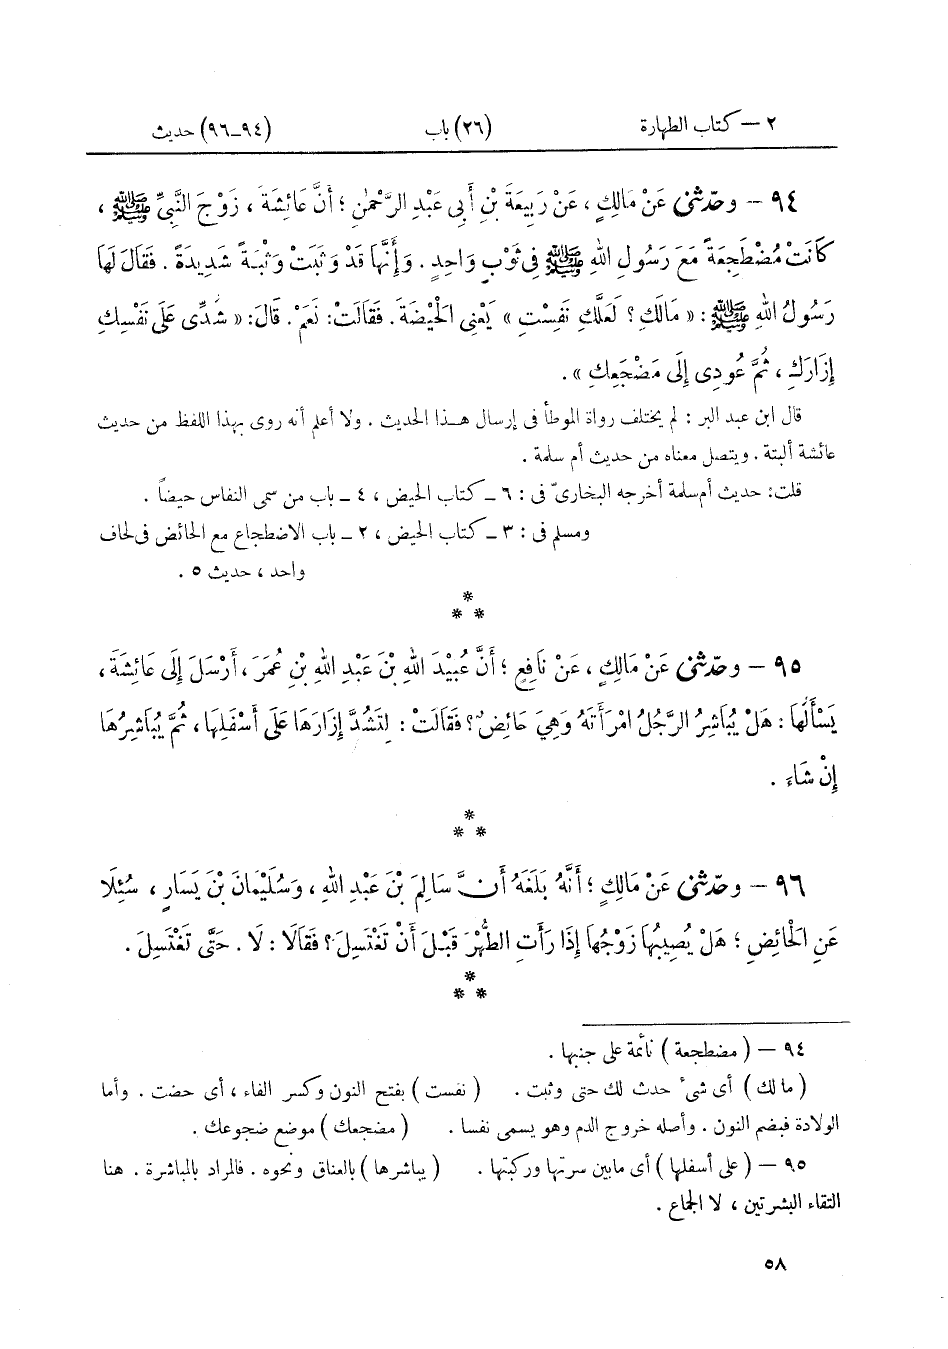 ٢ — كتاب الطهارة (٢٦) باب (٩٤–٩٦) حديث
٩٤ — وحدّثني عَنْ مَالِكٍ ، عَنْ رَبِيعَةَ بْنِ أَبِى عَبْدِ الرَّحْمٰنِ ؛ أَنَّ عَائِشَةَ ، زَوْجَ النَّبِيِّ ﷺ ،
كَانَتْ مُضْطَجِعَةً مَعَ رَسُولِ اللهِ ﷺ فِى ثَوْبٍ وَاحِدٍ . وَإِنَّهَا قَدْ وَثَبَتْ وَثْبَةً شَدِيدَةً . فَقَالَ لَهَا
رَسُولُ اللهِ ﷺ : « مَالَكِ ؟ لَعَلَّكِ نَفِسْتِ » يَعْنِى الْحَيْضَةَ . فَقَالَتْ : نَعَمْ . قَالَ : « شُدِّى عَلَى نَفْسِكِ
إِزَارَكِ ، ثُمَّ عُودِى إِلَى مَضْجَعِكِ » .
قال ابن عبد البر : لم يختلف رواة الموطأ فى إرسال هـذا الحديث . ولا أعلم أنه روى بهذا اللفظ من حديث
عائشة ألبتة . ويتصل معناه من حديث أم سلمة .
قلت : حديث أم سلمة أخرجه البخارىّ فى : ٦ ـ كتاب الحيض ، ٤ ـ باب من سمى النفاس حيضاً .
ومسلم فى : ٣ ـ كتاب الحيض ، ٢ ـ باب الاضطجاع مع الحائض فى لحاف
واحد ، حديث ٥ .
*
* *
٩٥ — وحدّثني عَنْ مَالِكٍ ، عَنْ نَافِعٍ ؛ أَنَّ عُبَيْدَ اللهِ بْنَ عَبْدِ اللهِ بْنِ عُمَرَ ، أَرْسَلَ إِلَى عَائِشَةَ ،
يَسْأَلُهَا : هَلْ يُبَاشِرُ الرَّجُلُ امْرَأَتَهُ وَهِيَ حَائِضٌ ؟ فَقَالَتْ : لِتَشُدَّ إِزَارَهَا عَلَى أَسْفَلِهَا ، ثُمَّ يُبَاشِرُهَا
إِنْ شَاءَ .
*
* *
٩٦ — وحدّثني عَنْ مَالِكٍ ؛ أَنَّهُ بَلَغَهُ أَنَّ سَالِمَ بْنَ عَبْدِ اللهِ ، وَسُلَيْمَانَ بْنَ يَسَارٍ ، سُئِلَا
عَنِ الْحَائِضِ ؛ هَلْ يُصِيبُهَا زَوْجُهَا إِذَا رَأَتِ الطُّهْرَ قَبْلَ أَنْ تَغْتَسِلَ ؟ فَقَالَا : لَا . حَتَّى تَغْتَسِلَ .
*
* *
٩٤ — ( مضطجعة ) نائمة على جنبها .
( مالك ) أى شىء حدث لك حتى وثبت . ( نفست ) بفتح النون وكسر الفاء ، أى حضت . وأما
الولادة فبضم النون . وأصله خروج الدم وهو يسمى نفسا . ( مضجعك ) موضع ضجوعك .
٩٥ — ( على أسفلها ) أى مابين سرتها وركبتها . ( يباشرها ) بالعناق ونحوه . فالمراد بالمباشرة . هنا
التقاء البشرتين ، لا الجماع .
٥٨